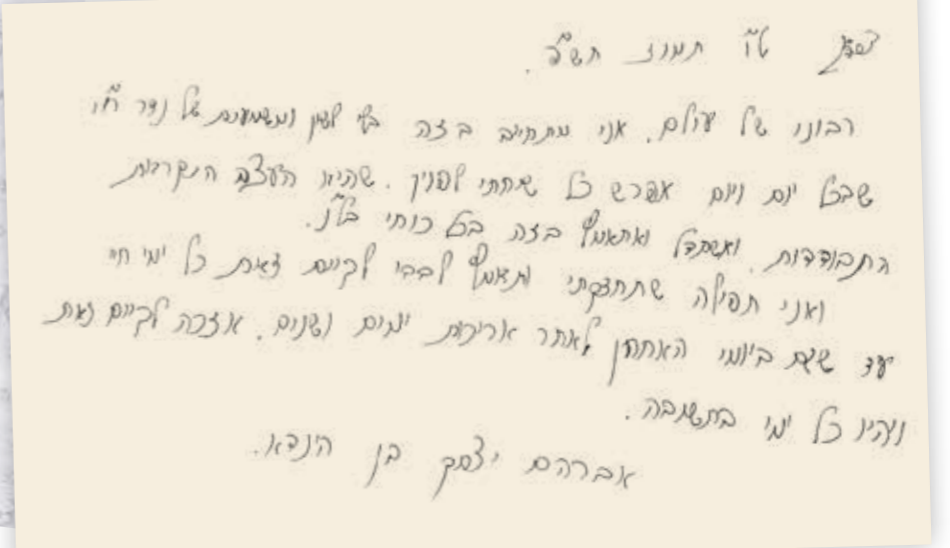 ט"ו תמוז
רבונו של עולם. אני מתחייב בזה בלי לשון ומשמעות של נדר ח"ו
שבכל יום ויום אפרש כל שיחתי לפניך. שהיא העצה הנקראת
התבודדות. ואשתדל ואתאמץ בזה בכל כוחי בל"נ.
ואני תפילה שתחזקני ותאמץ לבבי לקיים זאת כל ימי חיי
עד שגם ביומי האחרון לאחר אריכות ימים ושנים. אזכה לקיים זאת
ויהיו כל ימי בתשובה.
אברהם יצחק בן הינדא.